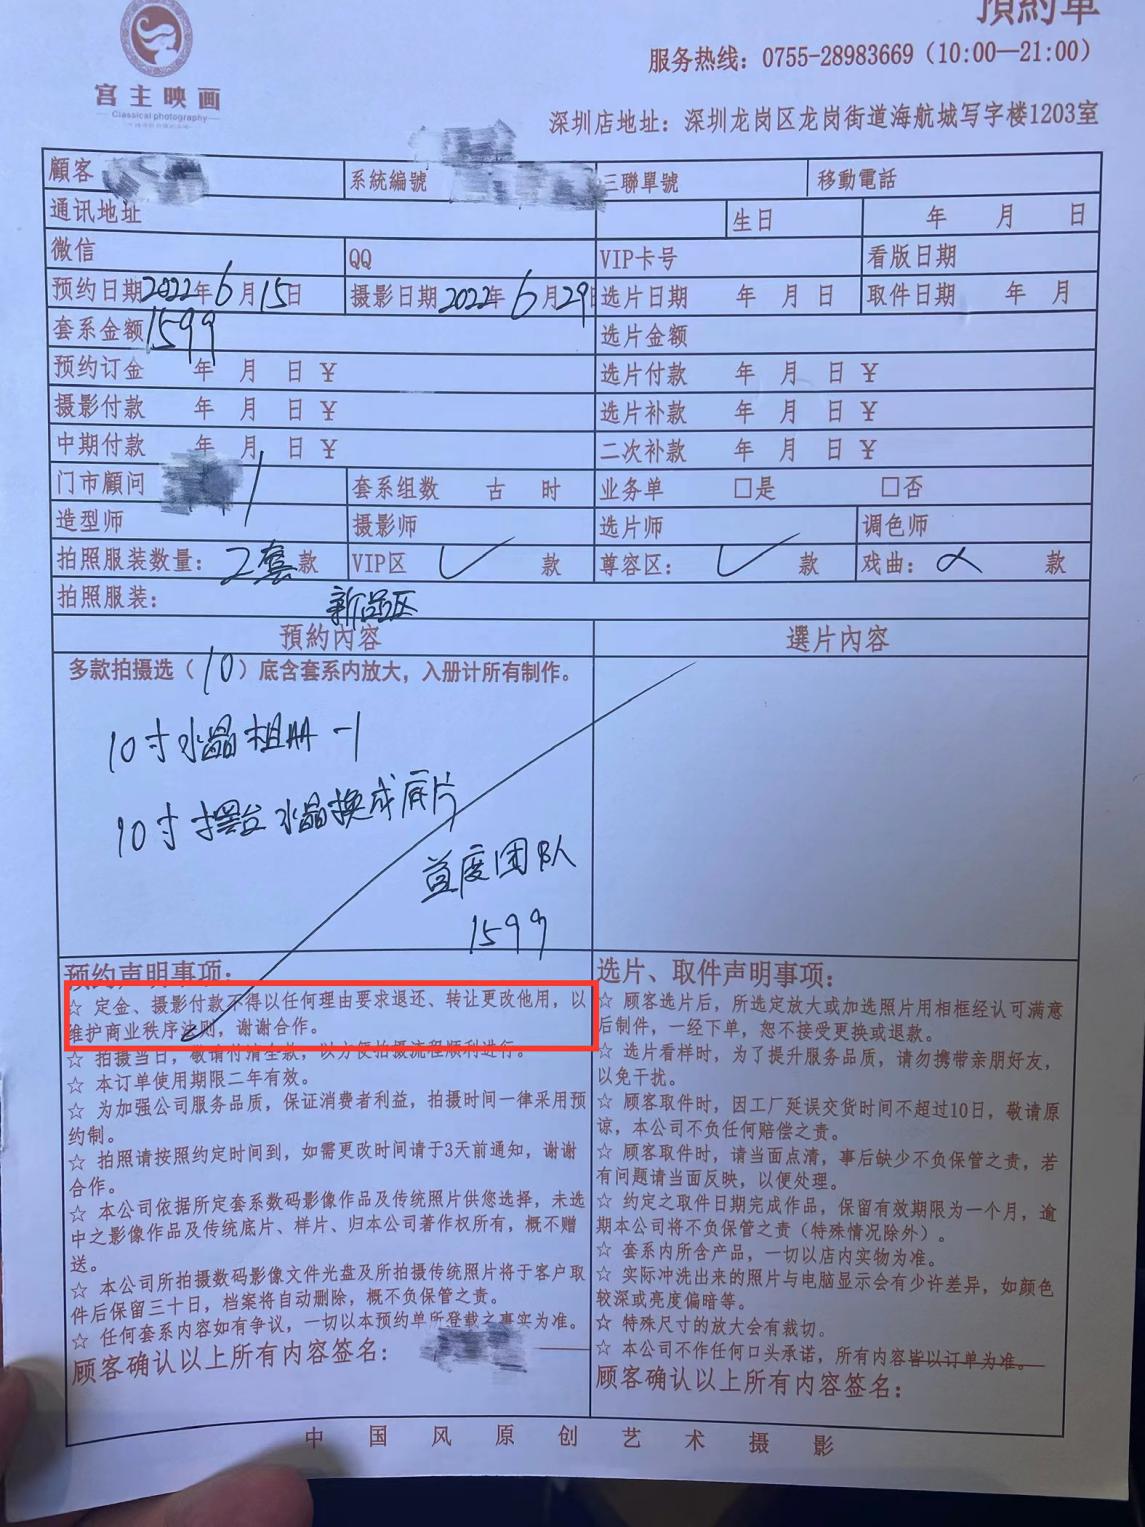 預約單
宫主映画
Classical photography
服务热线：0755-28983669（10:00—21:00）
深圳店地址：深圳龙岗区龙岗街道海航城写字楼1203室
顧客 系統編號 三聯單號 移動電話
通讯地址 生日 年 月 日
微信 QQ VIP卡号 看版日期
预约日期2022年6月15日 摄影日期2022年6月29日 选片日期 年 月 日 取件日期 年 月
套系金额1599 选片金额
预约订金 年 月 日 ￥ 选片付款 年 月 日 ￥
摄影付款 年 月 日 ￥ 选片补款 年 月 日 ￥
中期付款 年 月 日 ￥ 二次补款 年 月 日 ￥
门市顧问 套系组数 古 时 业务单 □是 □否
造型师 摄影师 选片师 调色师
拍照服装数量：2套款 VIP区 款 尊容区： 款 戏曲： 款
拍照服装： 新品区
預約內容 選片內容
多款拍摄选（10）底含套系内放大，入册计所有制作。
10寸水晶相册-1
10寸摆台水晶换成底片
首度团队
1599
预约声明事项：
☆ 定金、摄影付款不得以任何理由要求退还、转让更改他用，以
维护商业秩序法则，谢谢合作。
☆ 拍摄当日，敬请付清全款，以方便拍摄流程顺利进行。
☆ 本订单使用期限二年有效。
☆ 为加强公司服务品质，保证消费者利益，拍摄时间一律采用预
约制。
☆ 拍照请按照约定时间到，如需更改时间请于3天前通知，谢谢
合作。
☆ 本公司依据所定套系数码影像作品及传统照片供您选择，未选
中之影像作品及传统底片、样片、归本公司著作权所有，概不赠
送。
☆ 本公司所拍摄数码影像文件光盘及所拍摄传统照片将于客户取
件后保留三十日，档案将自动删除，概不负保管之责。
☆ 任何套系内容如有争议，一切以本预约单所登载之事实为准。
顾客确认以上所有内容签名：
选片、取件声明事项：
☆ 顾客选片后，所选定放大或加选照片用相框经认可满意
后制件，一经下单，恕不接受更换或退款。
☆ 选片看样时，为了提升服务品质，请勿携带亲朋好友，
以免干扰。
☆ 顾客取件时，因工厂延误交货时间不超过10日，敬请原
谅，本公司不负任何赔偿之责。
☆ 顾客取件时，请当面点清，事后缺少不负保管之责，若
有问题请当面反映，以便处理。
☆ 约定之取件日期完成作品，保留有效期限为一个月，逾
期本公司将不负保管之责（特殊情况除外）。
☆ 套系内所含产品，一切以店内实物为准。
☆ 实际冲洗出来的照片与电脑显示会有少许差异，如颜色
较深或亮度偏暗等。
☆ 特殊尺寸的放大会有裁切。
☆ 本公司不作任何口头承诺，所有内容皆以订单为准。
顾客确认以上所有内容签名：
中国风原创艺术摄影